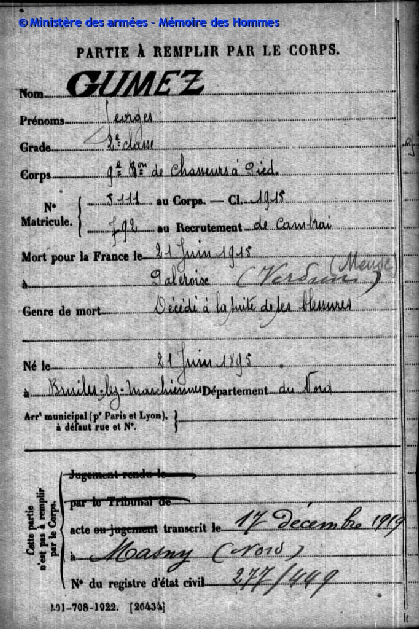 © Ministère des armées - Mémoire des Hommes
PARTIE À REMPLIR PAR LE CORPS.
Nom GUMEZ
Prénoms Georges
Grade 2e classe
Corps 9e Bon de Chasseurs à Pied
N° Matricule. { 5111 au Corps. — Cl. 1915
792 au Recrutement de Cambrai
Mort pour la France le 21 Juin 1915
à (Verdun) (Meuse)
Genre de mort Décédé à la suite de ses blessures
Né le 21 Juin 1895
à Bruille-lez-Marchiennes Département du Nord
Arrt municipal (pr Paris et Lyon), à défaut rue et N°. }
Cette partie n'est pas à remplir par le Corps.
Jugement rendu le
par le Tribunal de
acte ou jugement transcrit le 17 décembre 1919
à Masny (Nord)
N° du registre d'état civil 277/449
101-708-1922. [26434]